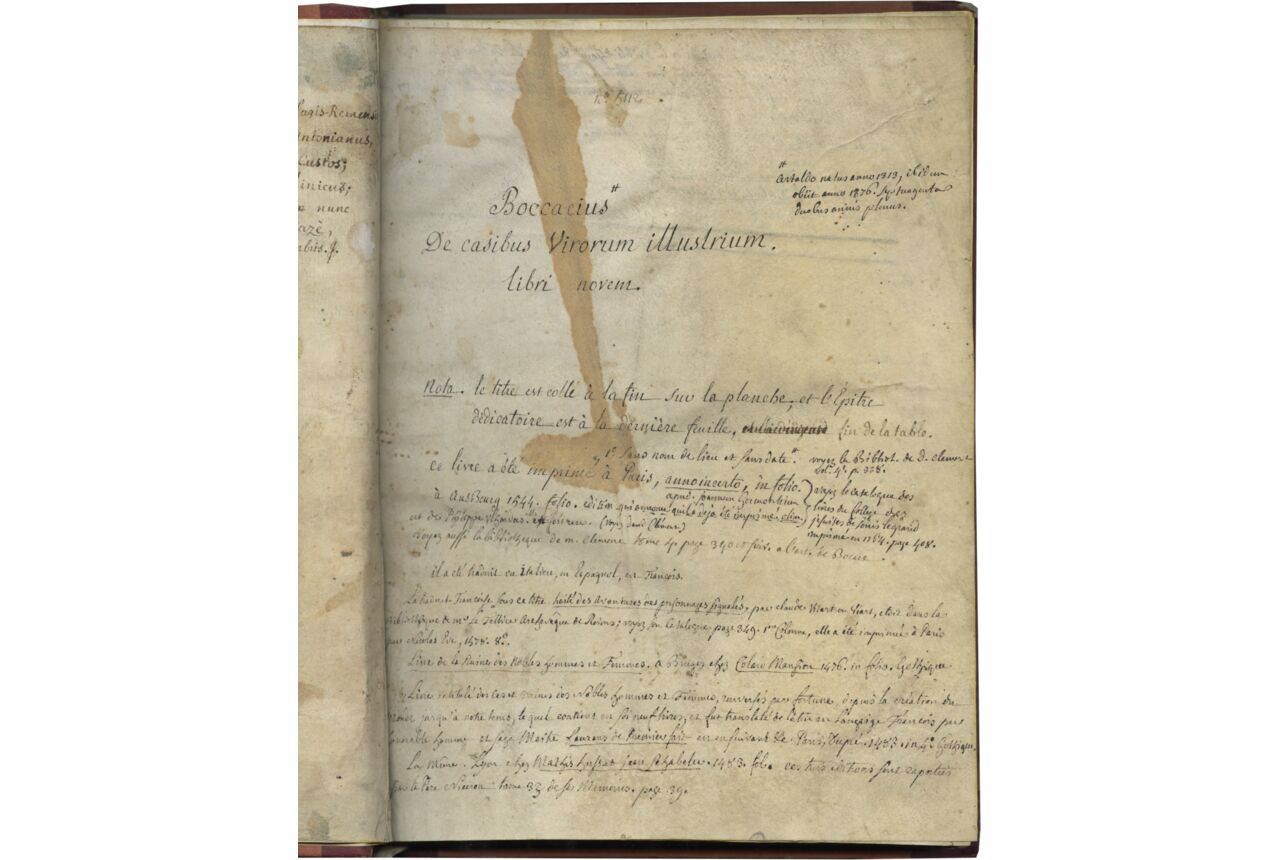 agis-Remens
ntonianus,
Custos;
inicus;
nunc
azé,
n° 511
# Certaldo natus anno 1313, ibidem
obiit anno 1376. septuaginta
duobus annis plenus.
Boccacius#
De casibus Virorum illustrium.
libri novem.
Nota. le titre est collé à la fin sur la planche, et l'Epitre
dédicatoire est à la dernière feuille, fin de la table.
1° sans nom de lieu et sans date#. voyez la Bibliot. de D. clement
vol. 4. p. 328.
ce livre a été imprimé à Paris, anno incerto, in folio.
apud Joannem Gormontium
voyez le catalogue des
livres du College des
jésuites de Louis le grand
imprimé en 1764. page 408.
à Ausbourg 1544. folio. édition qui a déjà été imprimée
(voyez david Clément)
voyez aussi la bibliothèque de m. clement tome 4. page 340 et suiv. a l'art. de Bocace.
il a été traduit en italien, en Espagnol, en François.
La traduct. Françoise sous ce titre. traité des avantures des personnages signalés, par claude Witart ou Viart, est dans la
Bibliothèque de mr. le Tellier Archevêque de Reims; voyez son Catalogue page 349. 1ere Colonne, elle a été imprimée à Paris
par Nicolas Eve, 1578. 8°.
Livre de la Ruine des Nobles hommes et Femmes. à Bruges chez Colard Mansion 1476. in folio. Gothique.
Livre intitulé des cas et ruines des Nobles hommes et Femmes, renversés par fortune, depuis la création du
Monde jusqu'à notre tems, lequel contient en soi neuf livres, et fut translaté de latin en Langaige François par
honorable homme et sage Maître Laurens de Premier fait Paris, Dupré. 1483. in 4° Gothique.
La Même. Lyon chez Mathis husset jean Schabeler. 1483. fol. ces trois éditions sont raportées
par le Père Niceron tome 33 de ses Memoires. page 39.